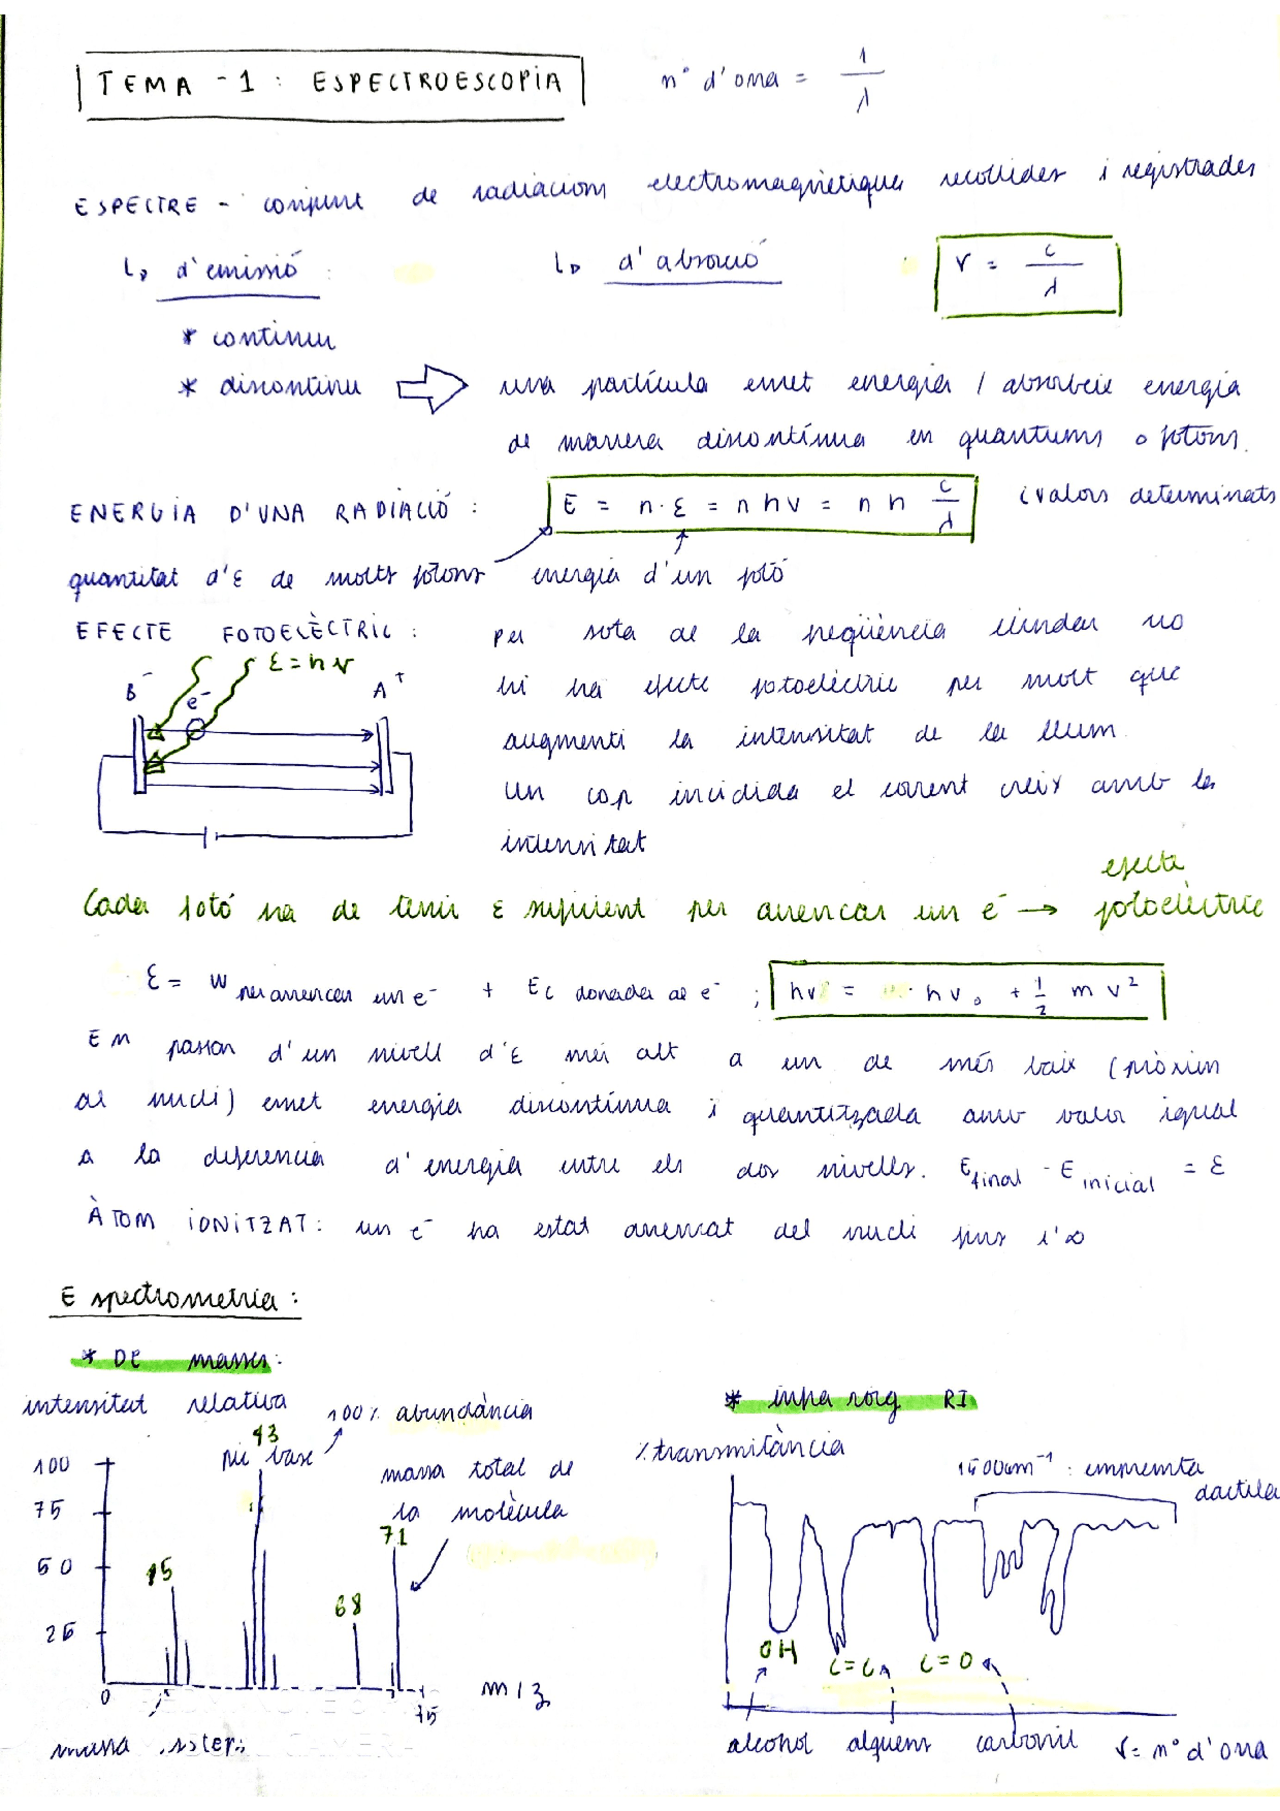 TEMA - 1 : ESPECTROESCOPIA
n° d'ona = 1/λ
ESPECTRE - conjunt de radiacions electromagnètiques recollides i registrades
↳ d'emissió :
↳ d'absorció
ν = c/λ
* continu
* discontinu ⇒ una partícula emet energia / absorbeix energia
de manera discontínua en quantums o fotons.
(valors determinats
ENERGIA D'UNA RADIACIÓ :
E = n·ε = n h ν = n h c/λ
quantitat d'ε de molts fotons
energia d'un fotó
EFECTE FOTOELÈCTRIC :
ε = h ν
B⁻
e⁻
A⁺
per sota de la freqüència llindar no
hi ha efecte fotoelèctric per molt que
augmenti la intensitat de la llum.
Un cop incidida el corrent creix amb la
intensitat
Cada fotó ha de tenir ε suficient per arrencar un e⁻ → efecte fotoelèctric
ε = W per arrencar un e⁻ + Ec donada al e⁻ ; hν = hν₀ + 1/2 m v²
En passar d'un nivell d'ε més alt a un de més baix (pròxim
al nucli) emet energia discontínua i quantitzada amb valor igual
a la diferència d'energia entre els dos nivells. E final - E inicial = ε
ÀTOM IONITZAT: un e⁻ ha estat arrencat del nucli fins l'∞
Espectrometria :
* DE masses :
intensitat relativa
100% abundància
43
pic base
massa total de
la molècula
100
75
50
25
15
68
71
0
75
m/z
massa
* infraroig RI
% transmitància
1500cm⁻¹ : empremta
dactilar
OH
C=C
C=O
alcohol
alquens
carbonil
ν = n° d'ona